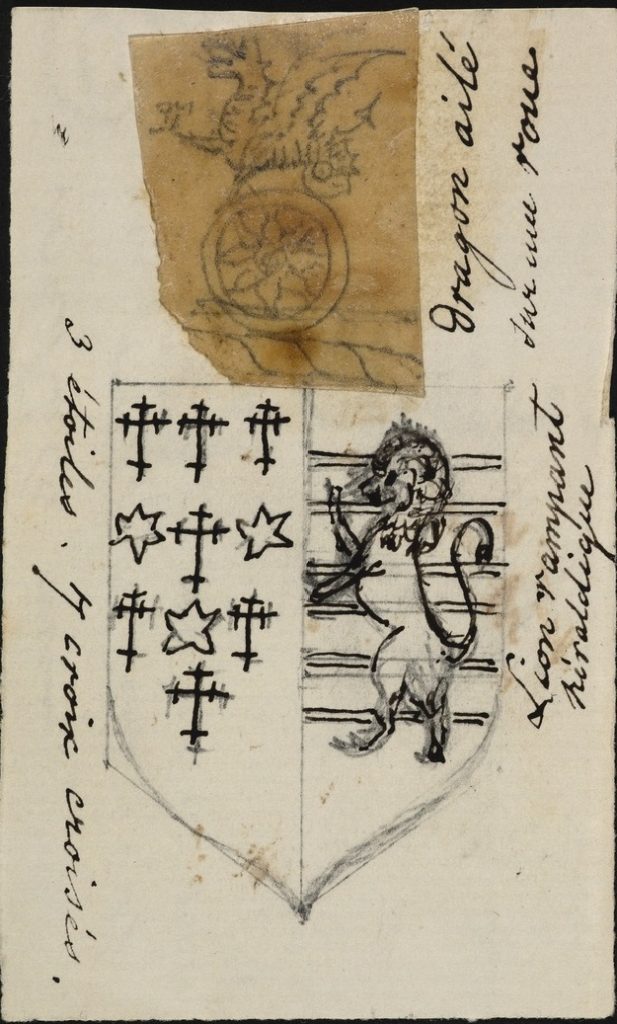 Dragon ailé
sur une roue
Lion rampant
hiraldique
3 étoiles. 7 croix croisés.